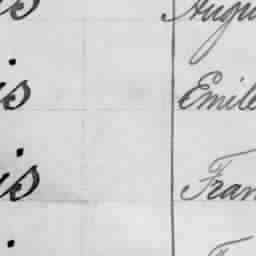 is Augu
is Emile
is Fran